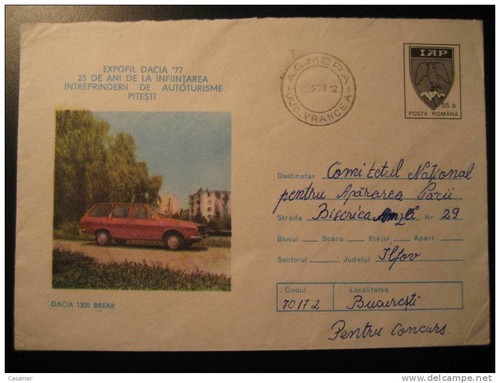 EXPOFIL DACIA '77
25 DE ANI DE LA INFIINTAREA
INTREPRINDERII DE AUTOTURISME
PITEȘTI
ADJUD. VRANCEA
IAP
55 b
POSTA ROMÂNĂ
Destinatar Comitetul Național
pentru Apărarea Păcii
Strada Biserica Amzei Nr. 29
Blocul Scara Etajul Apart
Sectorul Județul Ilfov
Codul Localitatea
70172 București
Pentru Concurs.
DACIA 1300 BREAK
Casamar
delcampe.net